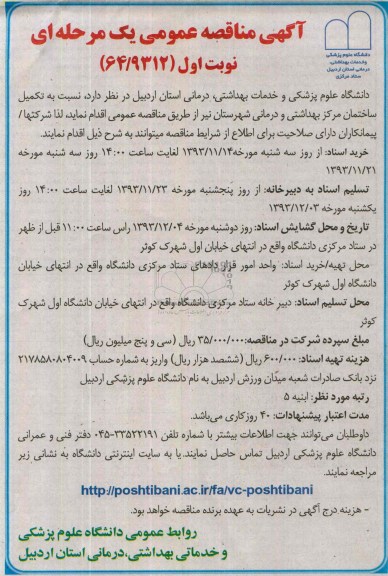 دانشگاه علوم پزشکی
وخدمات بهداشتی،
درمانی استان اردبیل
ستاد مرکزی
آگهی مناقصه عمومی یک مرحله ای
نوبت اول (۶۴/۹۳۱۲)
دانشگاه علوم پزشکی و خدمات بهداشتی، درمانی استان اردبیل در نظر دارد، نسبت به تکمیل
ساختمان مرکز بهداشتی و درمانی شهرستان نیر از طریق مناقصه عمومی اقدام نماید، لذا شرکتها /
پیمانکاران دارای صلاحیت برای اطلاع از شرایط مناقصه میتوانند به شرح ذیل اقدام نمایند.
خرید اسناد: از روز سه شنبه مورخه۱۳۹۳/۱۱/۱۴ لغایت ساعت ۱۴:۰۰ روز سه شنبه مورخه
۱۳۹۳/۱۱/۲۱
تسلیم اسناد به دبیرخانه: از روز پنجشنبه مورخه ۱۳۹۳/۱۱/۲۳ لغایت ساعت ۱۴:۰۰ روز
یکشنبه مورخه ۱۳۹۳/۱۲/۰۳
تاریخ و محل گشایش اسناد: روز دوشنبه مورخه ۱۳۹۳/۱۲/۰۴ راس ساعت ۱۱:۰۰ قبل از ظهر
در ستاد مرکزی دانشگاه واقع در انتهای خیابان اول شهرک کوثر
محل تهیه/خرید اسناد: واحد امور قراردادهای ستاد مرکزی دانشگاه واقع در انتهای خیابان
دانشگاه اول شهرک کوثر
محل تسلیم اسناد: دبیر خانه ستاد مرکزی دانشگاه واقع در انتهای خیابان دانشگاه اول شهرک
کوثر
مبلغ سپرده شرکت در مناقصه:۳۵/۰۰۰/۰۰۰ ریال (سی و پنج میلیون ریال)
هزینه تهیه اسناد: ۶۰۰/۰۰۰ ریال (ششصد هزار ریال) واریز به شماره حساب ۲۱۷۸۵۸۰۸۰۴۰۰۹
نزد بانک صادرات شعبه میدان ورزش اردبیل به نام دانشگاه علوم پزشکی اردبیل
رتبه مورد نظر: ابنیه ۵
مدت اعتبار پیشنهادات: ۴۰ روزکاری می‌باشد.
داوطلبان می‌توانند جهت اطلاعات بیشتر با شماره تلفن ۳۳۵۲۲۱۹۱-۰۴۵ دفتر فنی و عمرانی
دانشگاه علوم پزشکی اردبیل تماس حاصل نمایند.یا به سایت اینترنتی دانشگاه به نشانی زیر
مراجعه نمایند.
http://poshtibani.ac.ir/fa/vc-poshtibani
- هزینه درج آگهی در نشریات به عهده برنده مناقصه خواهد بود.
روابط عمومی دانشگاه علوم پزشکی
و خدماتی بهداشتی،درمانی استان اردبیل